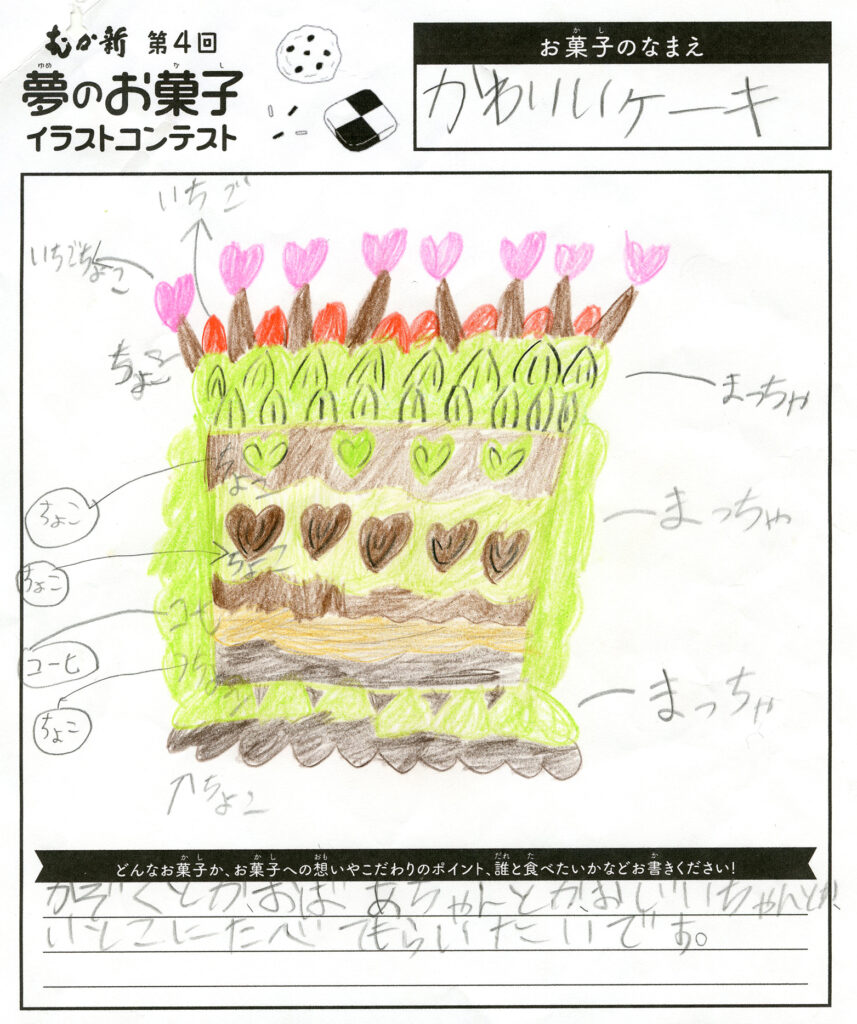 むか新 第4回
夢のお菓子
ゆめ か し
イラストコンテスト
お菓子のなまえ
か し
かわいいケーキ
いちご
いちごちょこ
ちょこ
まっちゃ
ちょこ
ちょこ
まっちゃ
ちょこ
ちょこ
コヒ
コーヒ
ちょこ
ちょこ
まっちゃ
↑ちょこ
どんなお菓子か、お菓子への想いやこだわりのポイント、誰と食べたいかなどお書きください!
か し か し おも だれ た か
かぞくとか、おばあちゃんとか、おじいちゃんとか、
いとこにたべてもらいたいです。